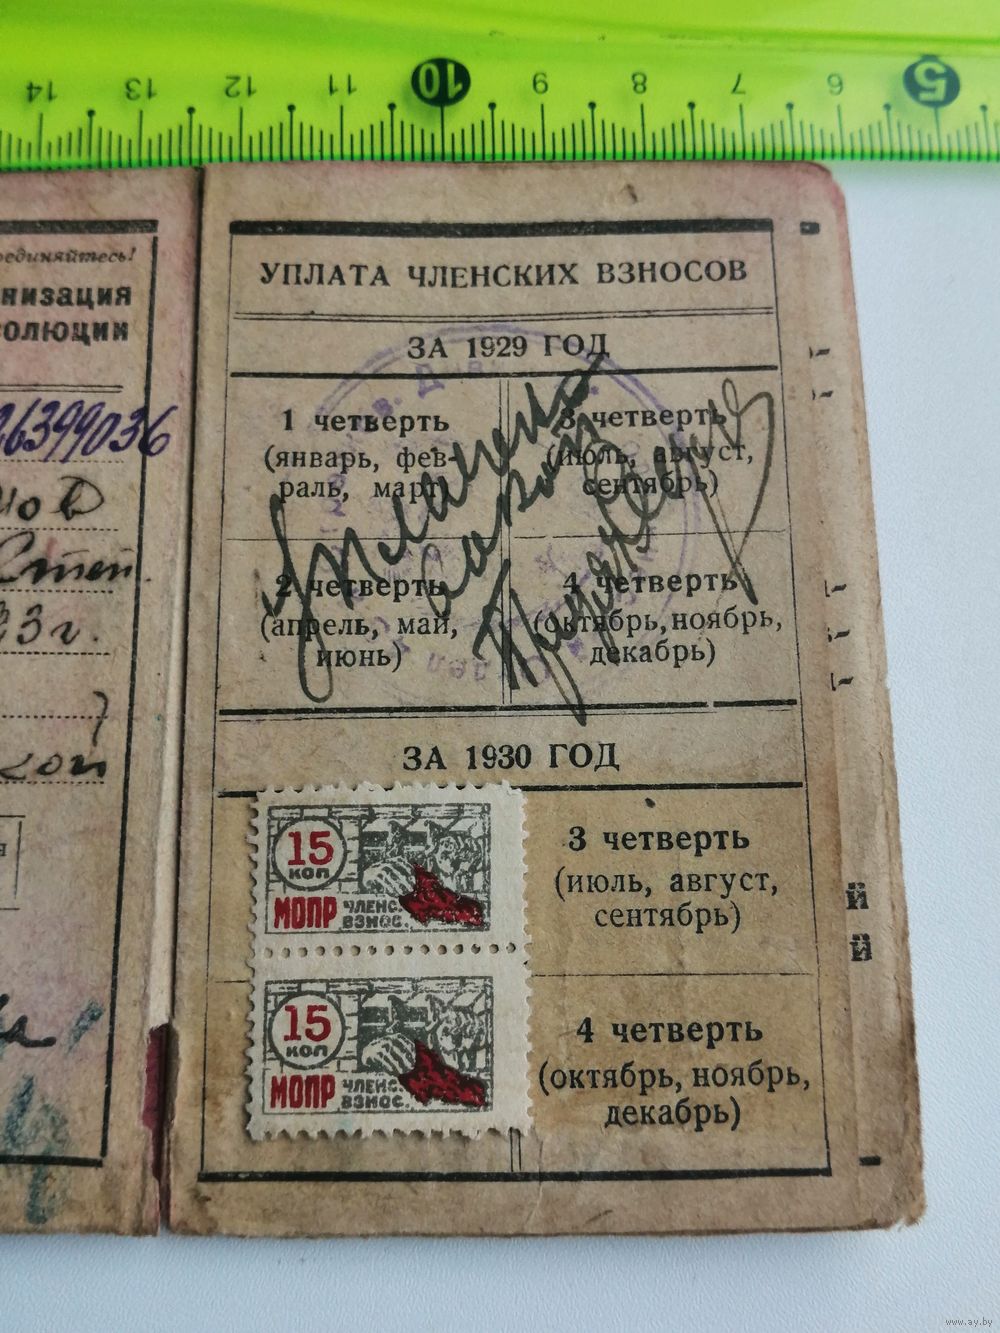 14 13 12 11 10 9 8 7 6 5
единяйтесь!
низация
волюции
26399036
нов
Степ.
23 г.
коп
я
УПЛАТА ЧЛЕНСКИХ ВЗНОСОВ
ЗА 1929 ГОД
1 четверть
(январь, фев-
раль, март)
3 четверть
(июль, август,
сентябрь)
2 четверть
(апрель, май,
июнь)
4 четверть
(октябрь, ноябрь,
декабрь)
Уплачено
ЗА 1930 ГОД
15
коп
МОПР ЧЛЕНС.
ВЗНОС.
15
коп
МОПР ЧЛЕНС.
ВЗНОС.
3 четверть
(июль, август,
сентябрь)
4 четверть
(октябрь, ноябрь,
декабрь)
й
й
www.ay.by